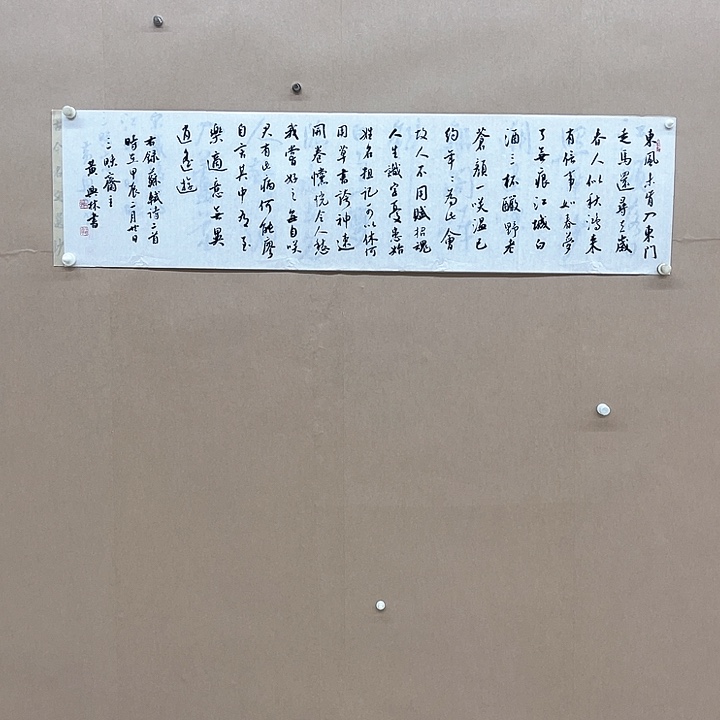 東風未肯入東門
走馬還尋去歲
村人似秋鴻来
有信事如春夢
了無痕江城白
酒三杯釅野老
蒼顏一咲温已
約年〻為此會
故人不用賦招魂
人生識字憂患始
姓名粗記可以休何
用草書誇神速
開卷戃怳令人愁
我嘗好之每自咲
君有此病何能瘳
自言其中有至
樂適意無異
逍遙遊
右錄蘇軾詩二首
時在甲辰二月廿日
三味齋主
黄興林書